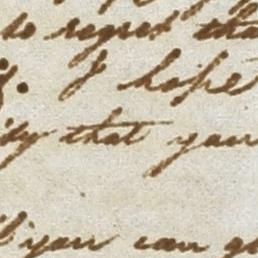 to regret tha
I hope
that your
you can g